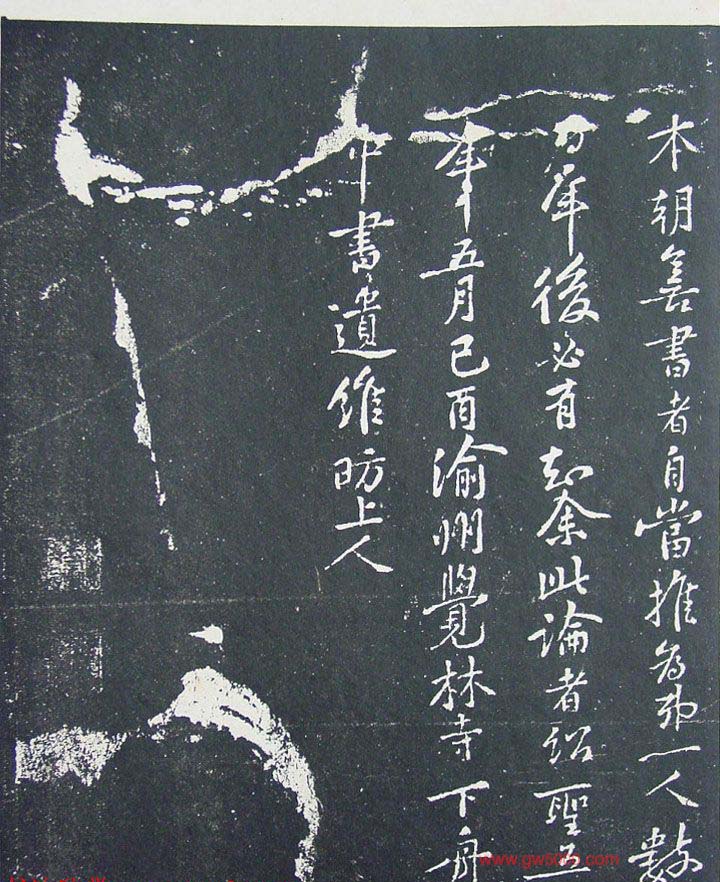 本朝善書者自當推為弟一人數
百年後必有知余此論者紹聖五
年五月己酉渝州覺林寺下舟
中書遺維昉上人
www.gw5000.com